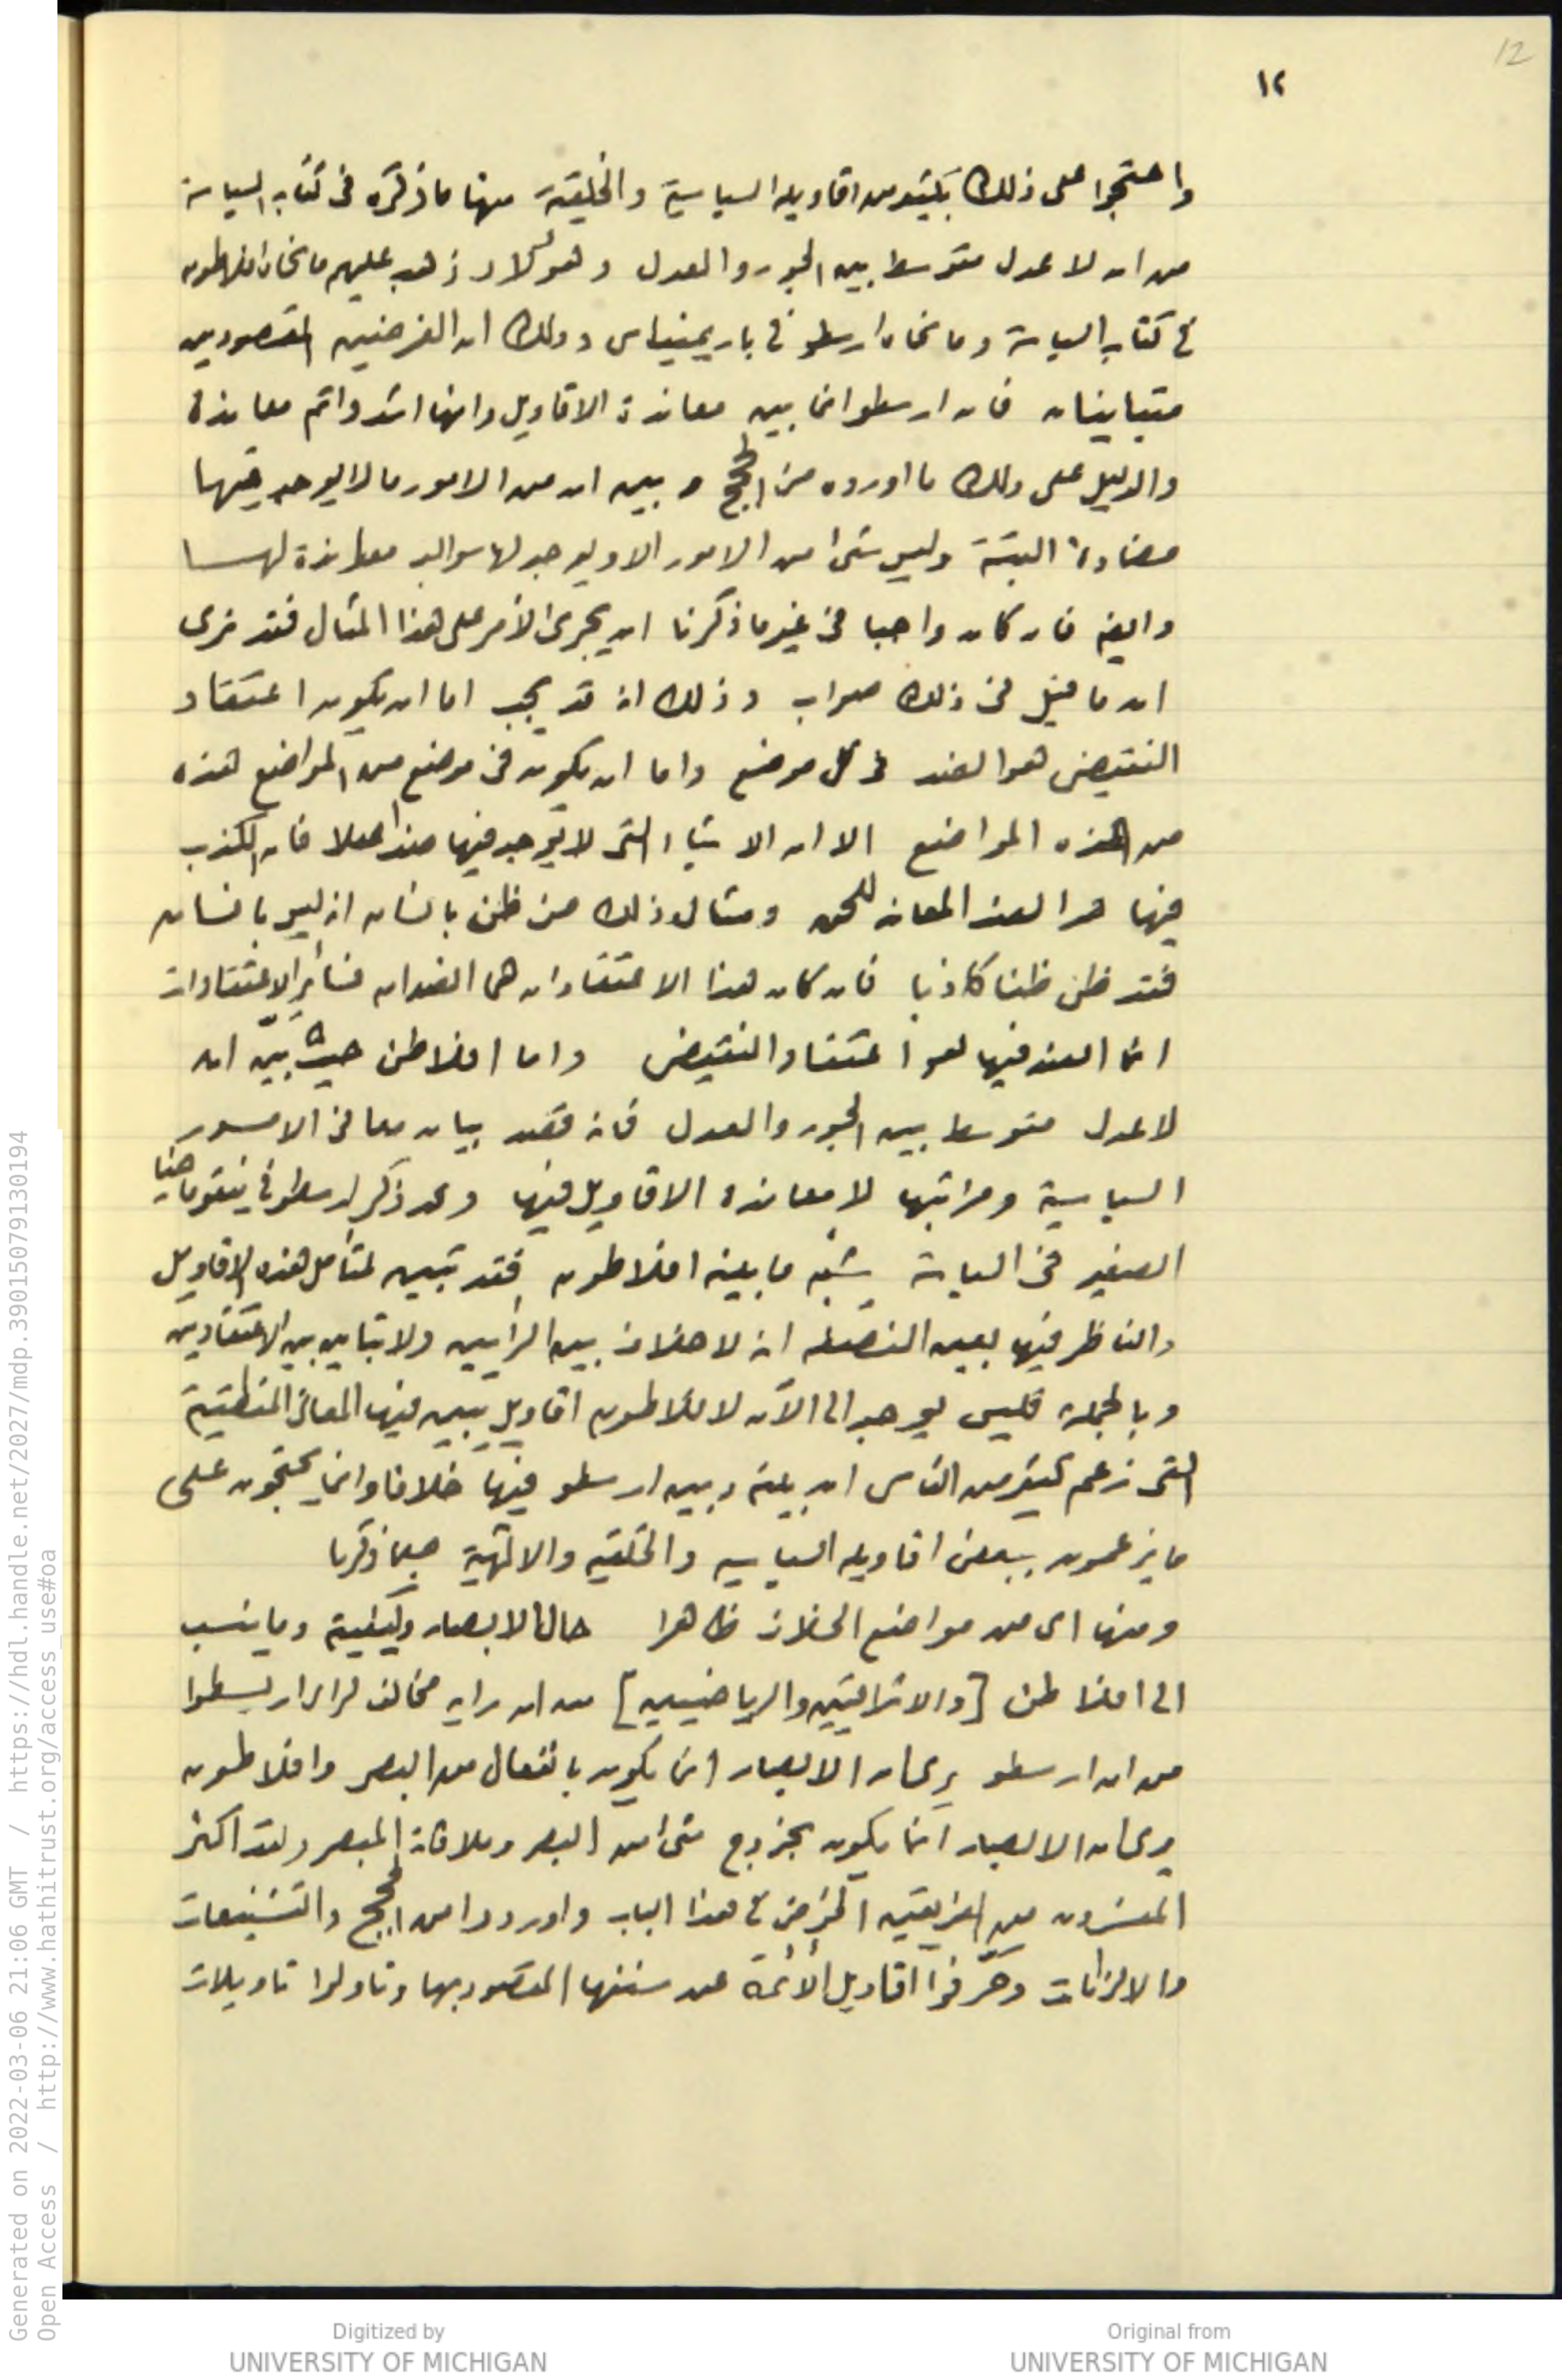 12
١٢
واحتجوا على ذلك بكثير من اقاويله السياسية والخلقية منها ما ذكره فى كتاب السياسة
من ان لا عدل متوسط بين الجور والعدل وهؤلاء ذهب عليهم ما نحاه افلاطون
فى كتاب السياسة وما نحاه ارسطو فى باريمينياس وذلك ان الغرضين المقصودين
متباينان فان ارسطو انما بين معاندة الاقاويل وانها اشد واتم معاندة
والدليل على ذلك ما اورده من الحجج وبين ان من الامور ما لا يوجد فيها
مضادة البتة وليس شئ من الامور الا ويوجد لها سوالب معاندة لها
وايضا فان كان واجبا فى غير ما ذكرنا ان يجرى الأمر على هذا المثال فقد نرى
ان ما قيل فى ذلك صواب وذلك انه قد يجب اما ان يكون اعتقاد
النقيض هو الضد فى كل موضع واما ان يكون فى موضع من المواضع هذه
من هذه المواضع الا ان الاشياء التى لا يوجد فيها ضد اصلا فان الكذب
فيها هو الضد المعاند للحق ومثال ذلك من ظن بانسان انه ليس بانسان
فقد ظن ظنا كاذبا فان كان هذا الاعتقادان هما الضدان فسائر الاعتقادات
انما الضد فيها هو اعتقاد النقيض واما افلاطن حيث بيّن ان
لا عدل متوسط بين الجور والعدل فانه قصد بيان معانى الامور
السياسية ومراتبها لا معاندة الاقاويل فيها وقد ذكر ارسطو فى نيقوماخيا
الصغير فى السياسة شبه ما بينه افلاطون فقد تبين لمتأمل هذه الاقاويل
والناظر فيها بعين النصفة انه لا خلاف بين الرأيين ولا تباين بين الاعتقادين
وبالجملة فليس يوجد الى الآن لافلاطون اقاويل يبين فيها المعانى المنطقية
التى زعم كثير من الناس ان بينه وبين ارسطو فيها خلافا وانما يحتجون على
ما يزعمون ببعض اقاويله السياسيه والخلقيه والالهية حسبما ذكرنا
ومنها اى من مواضع الخلاف ظاهرا حال الابصار وكيفية وما ينسب
الى افلاطن [والاشراقيين والرياضيين] من ان رايه مخالف لراى ارسطوا
من ان ارسطو يرى ان الابصار انما يكون بانفعال من البصر وافلاطون
يرى ان الابصار انما يكون بخروج شئ من البصر وملاقاة المبصر وقد اكثر
المفسرون من الفريقين الخوض فى هذا الباب واوردوا من الحجج والتشنيعات
والالزامات وحرّفوا اقاويل الأئمة عن سننها المقصود بها وتاولوا تاويلات
Generated on 2022-03-06 21:06 GMT / https://hdl.handle.net/2027/mdp.39015079130194
Open Access / http://www.hathitrust.org/access_use#oa
Digitized by
UNIVERSITY OF MICHIGAN
Original from
UNIVERSITY OF MICHIGAN